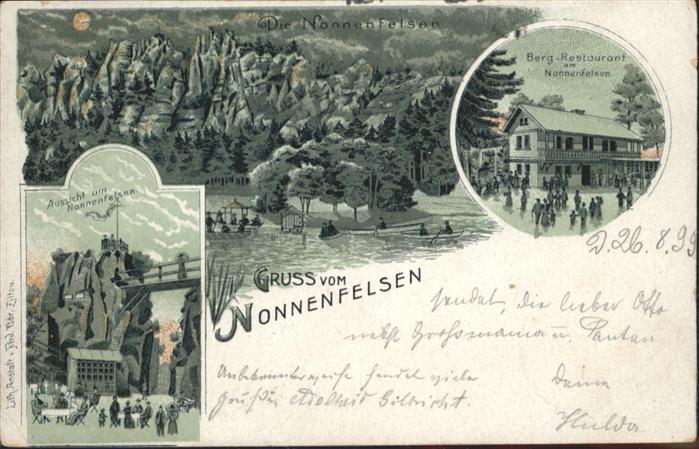 Die Nonnenfelsen
Berg-Restaurant
am
Nonnenfelsen.
Aussicht am
Nonnenfelsen.
D. 26. 8. 99
GRUSS VOM
NONNENFELSEN
sendet, die lieber Otto
nebst Grossmama u. Tanten
Unbekannterweise sendet viele
Grüße Adelheid Gilbricht.
Deine
Hulda.
Lith. Anstalt v. Zittau.